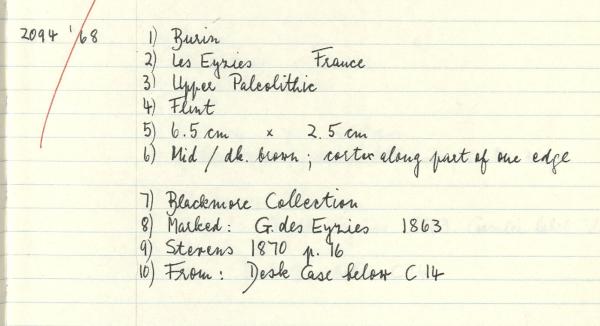 2094 '68 1) Burin
2) Les Eyzies France
3) Upper Paleolithic
4) Flint
5) 6.5 cm x 2.5 cm
6) Mid / dk. brown ; cortex along part of one edge
7) Blackmore Collection
8) Marked : G. des Eyzies 1863
9) Stevens 1870 p. 76
10) From : Desk Case below C 14